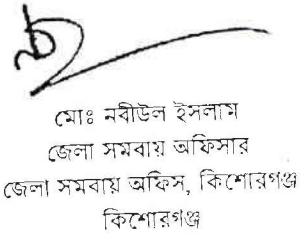 মোঃ নবীউল ইসলাম
জেলা সমবায় অফিসার
জেলা সমবায় অফিস, কিশোরগঞ্জ
কিশোরগঞ্জ